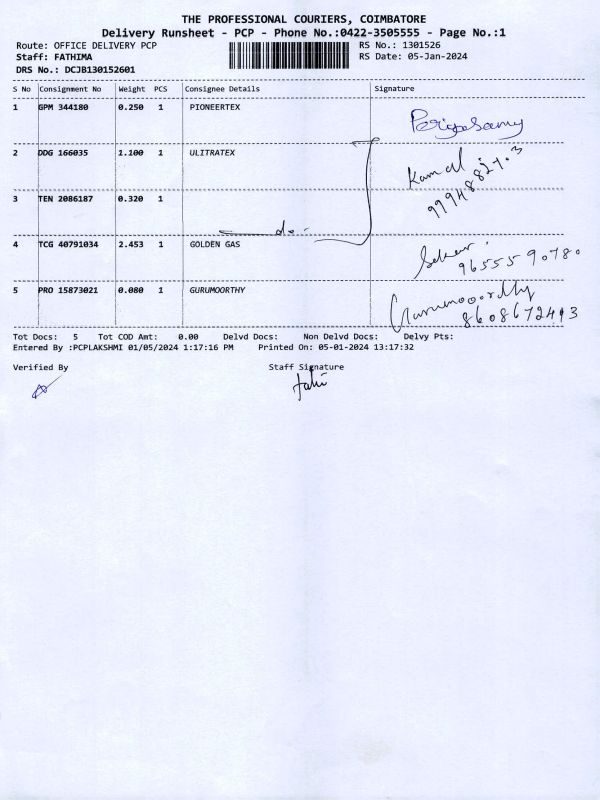 THE PROFESSIONAL COURIERS, COIMBATORE
Delivery Runsheet - PCP - Phone No.:0422-3505555 - Page No.:1
Route: OFFICE DELIVERY PCP RS No.: 1301526
Staff: FATHIMA RS Date: 05-Jan-2024
DRS No.: DCJB130152601
S No Consignment No Weight PCS Consignee Details Signature
1 GPM 344180 0.250 1 PIONEERTEX
Periyasamy
2 DDG 166035 1.100 1 ULITRATEX
Kamal
3 TEN 2086187 0.320 1
do.
4 TCG 40791034 2.453 1 GOLDEN GAS
Sekar
9655590780
5 PRO 15873021 0.080 1 GURUMOORTHY
Gurumoorthy
8608672413
Tot Docs: 5 Tot COD Amt: 0.00 Delvd Docs: Non Delvd Docs: Delvy Pts:
Entered By :PCPLAKSHMI 01/05/2024 1:17:16 PM Printed On: 05-01-2024 13:17:32
Verified By Staff Signature